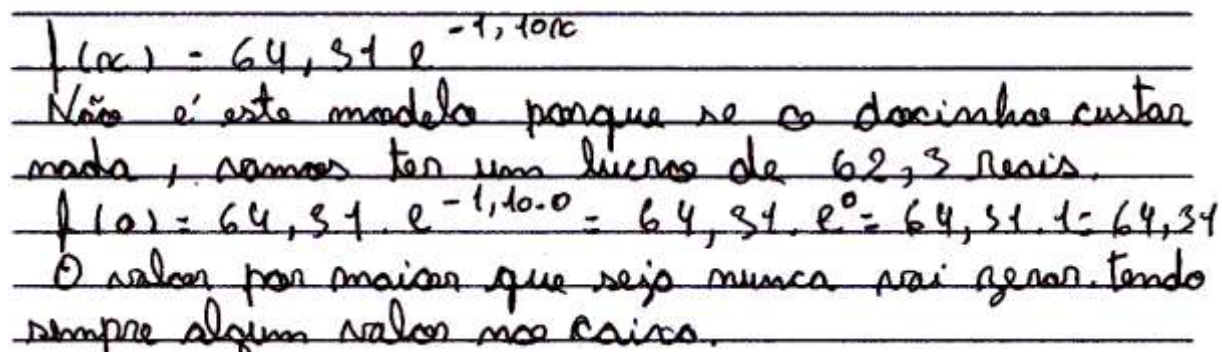 f(x) = 64,31 e^-1,10x
Não é este modelo porque se o docinho custar
nada, vamos ter um lucro de 62,3 reais.
f(0) = 64,31 . e^-1,10.0 = 64,31 . e^0 = 64,31 . 1 = 64,31
O valor por maior que seja nunca vai zerar. tendo
sempre algum valor no caixa.